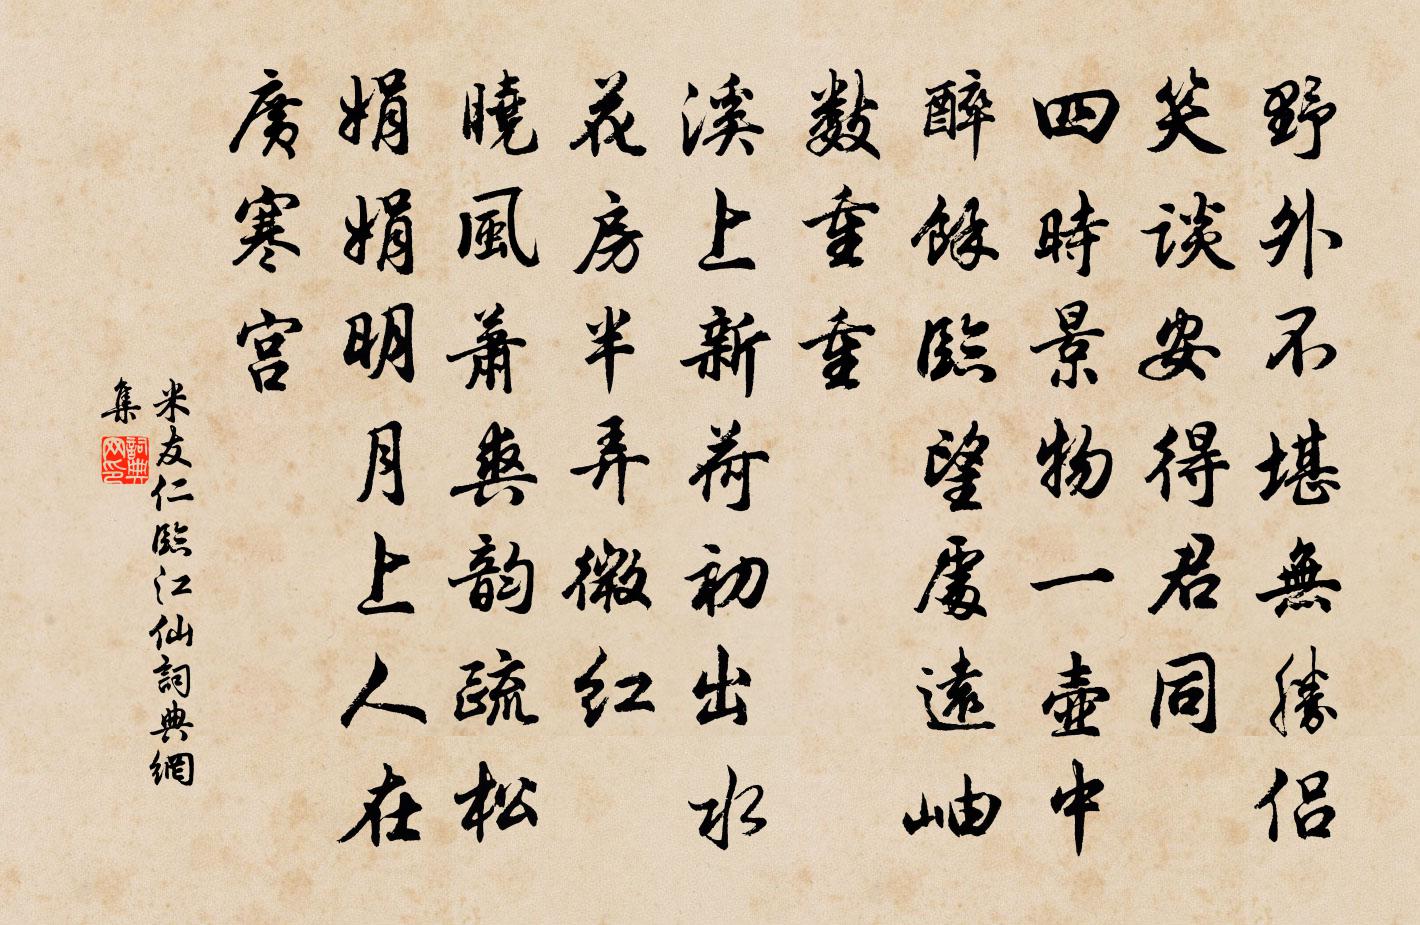 野外不堪無勝侶
笑談安得君同
四時景物一壺中
醉餘臨望處遠岫
數重重
溪上新荷初出水
花房半弄微紅
曉風蕭爽韵疏松
娟娟明月上人在
廣寒宮
米友仁臨江仙詞典網
集
詞典網印